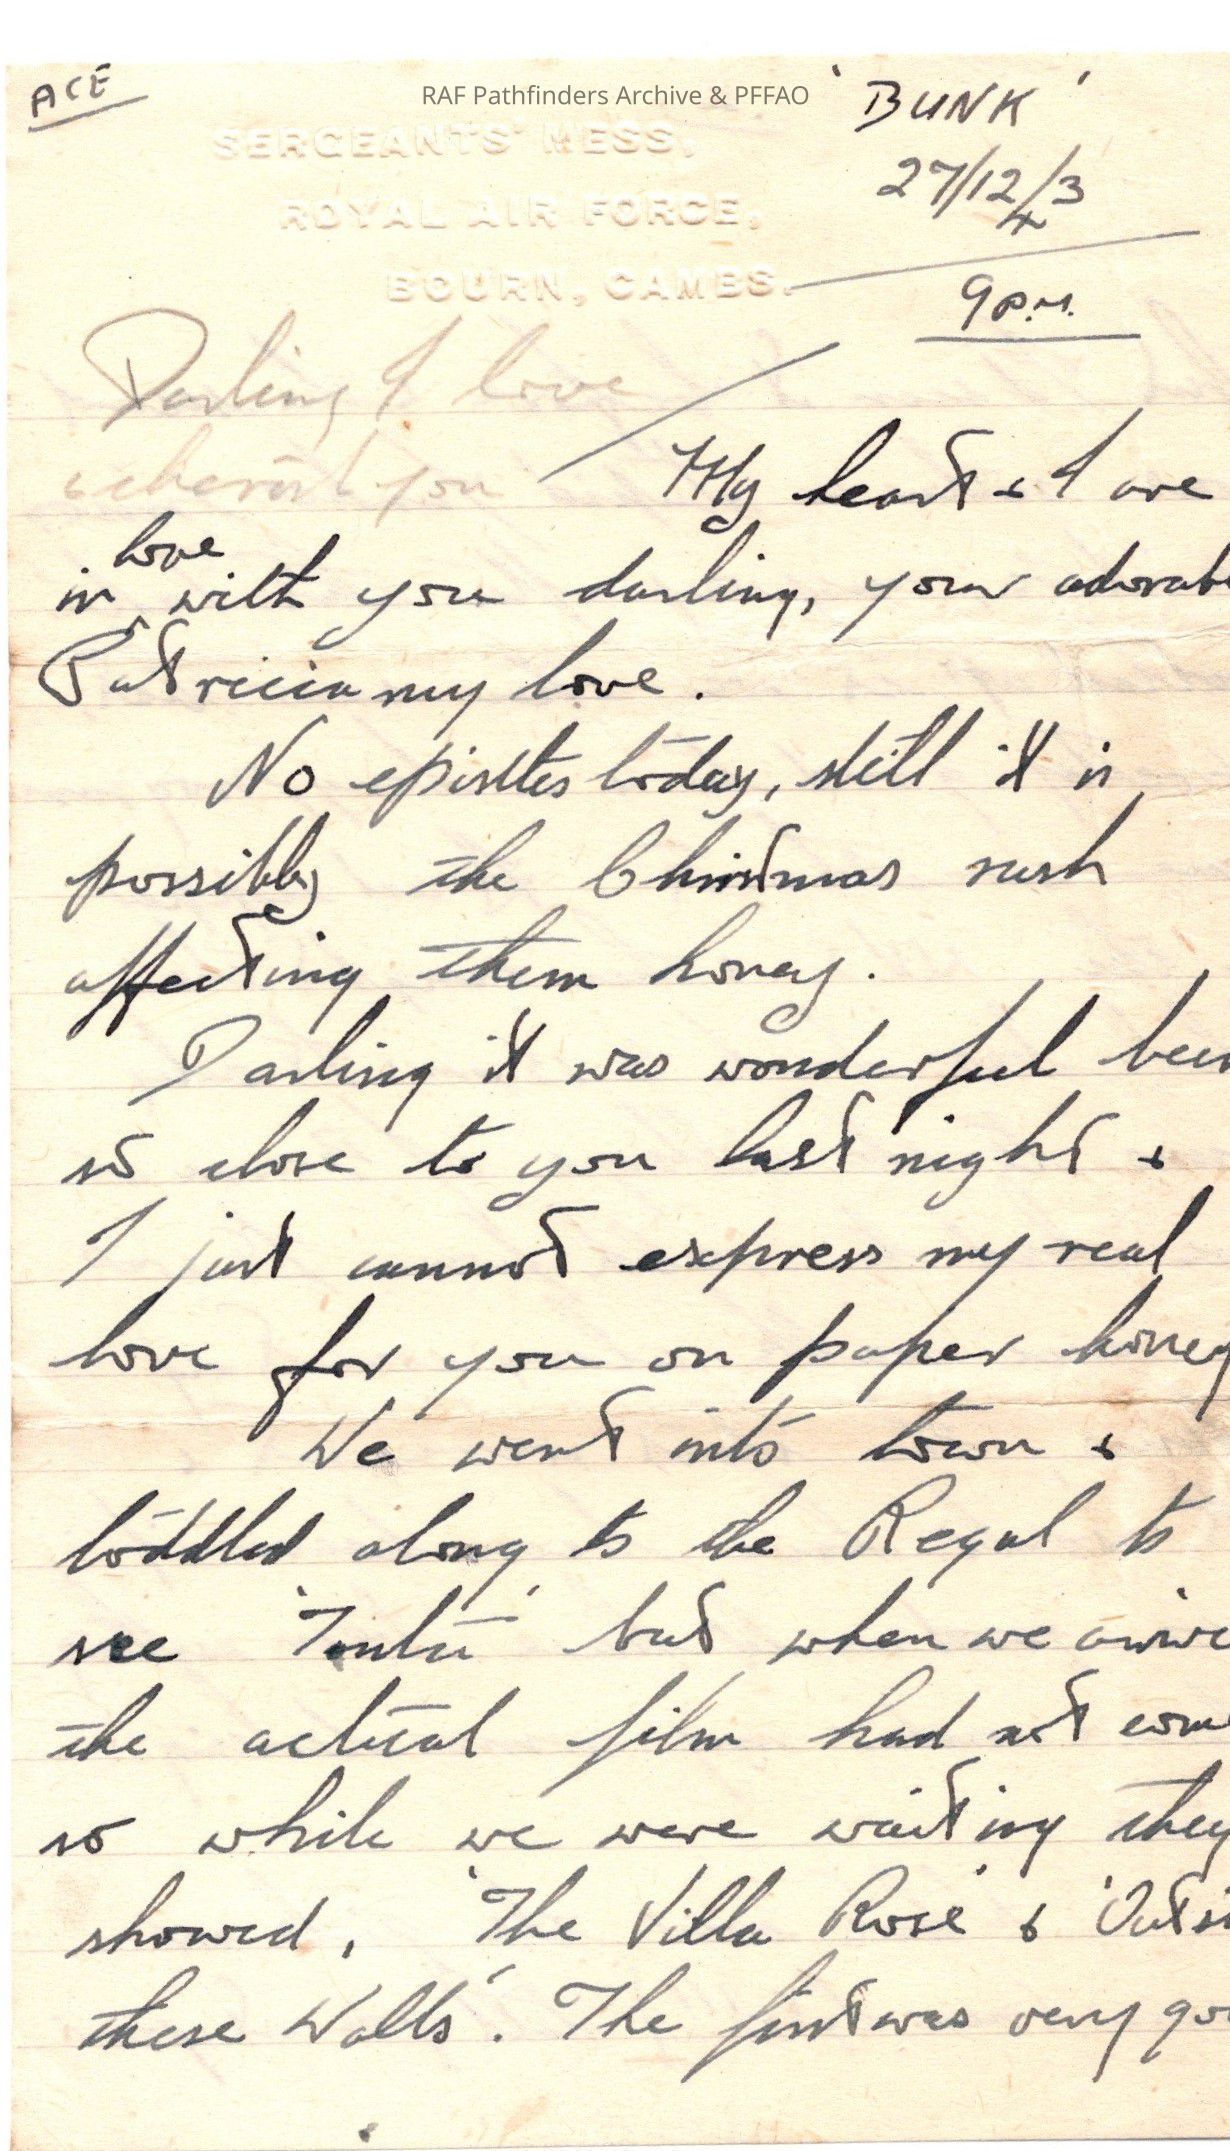 ACE
RAF Pathfinders Archive & PFFAO
'BUNK'
SERGEANTS' MESS,
27/12/43
ROYAL AIR FORCE,
BOURN, CAMBS.
9 P.M.
Darling I love
you
My heart & I are
in love with you darling, your adorab
Patricia my love.
No epistles today, still it is
possibly the Christmas rush
affecting them honey.
Darling it was wonderful bein
so close to you last night &
I just cannot express my real
love for you on paper honey
We went into town &
toddled along to the Regal to
see but when we arrive
the actual film had not com
so while we were waiting they
showed, 'The Villa Rose' & 'Outsi
these Walls'. The first was very goo